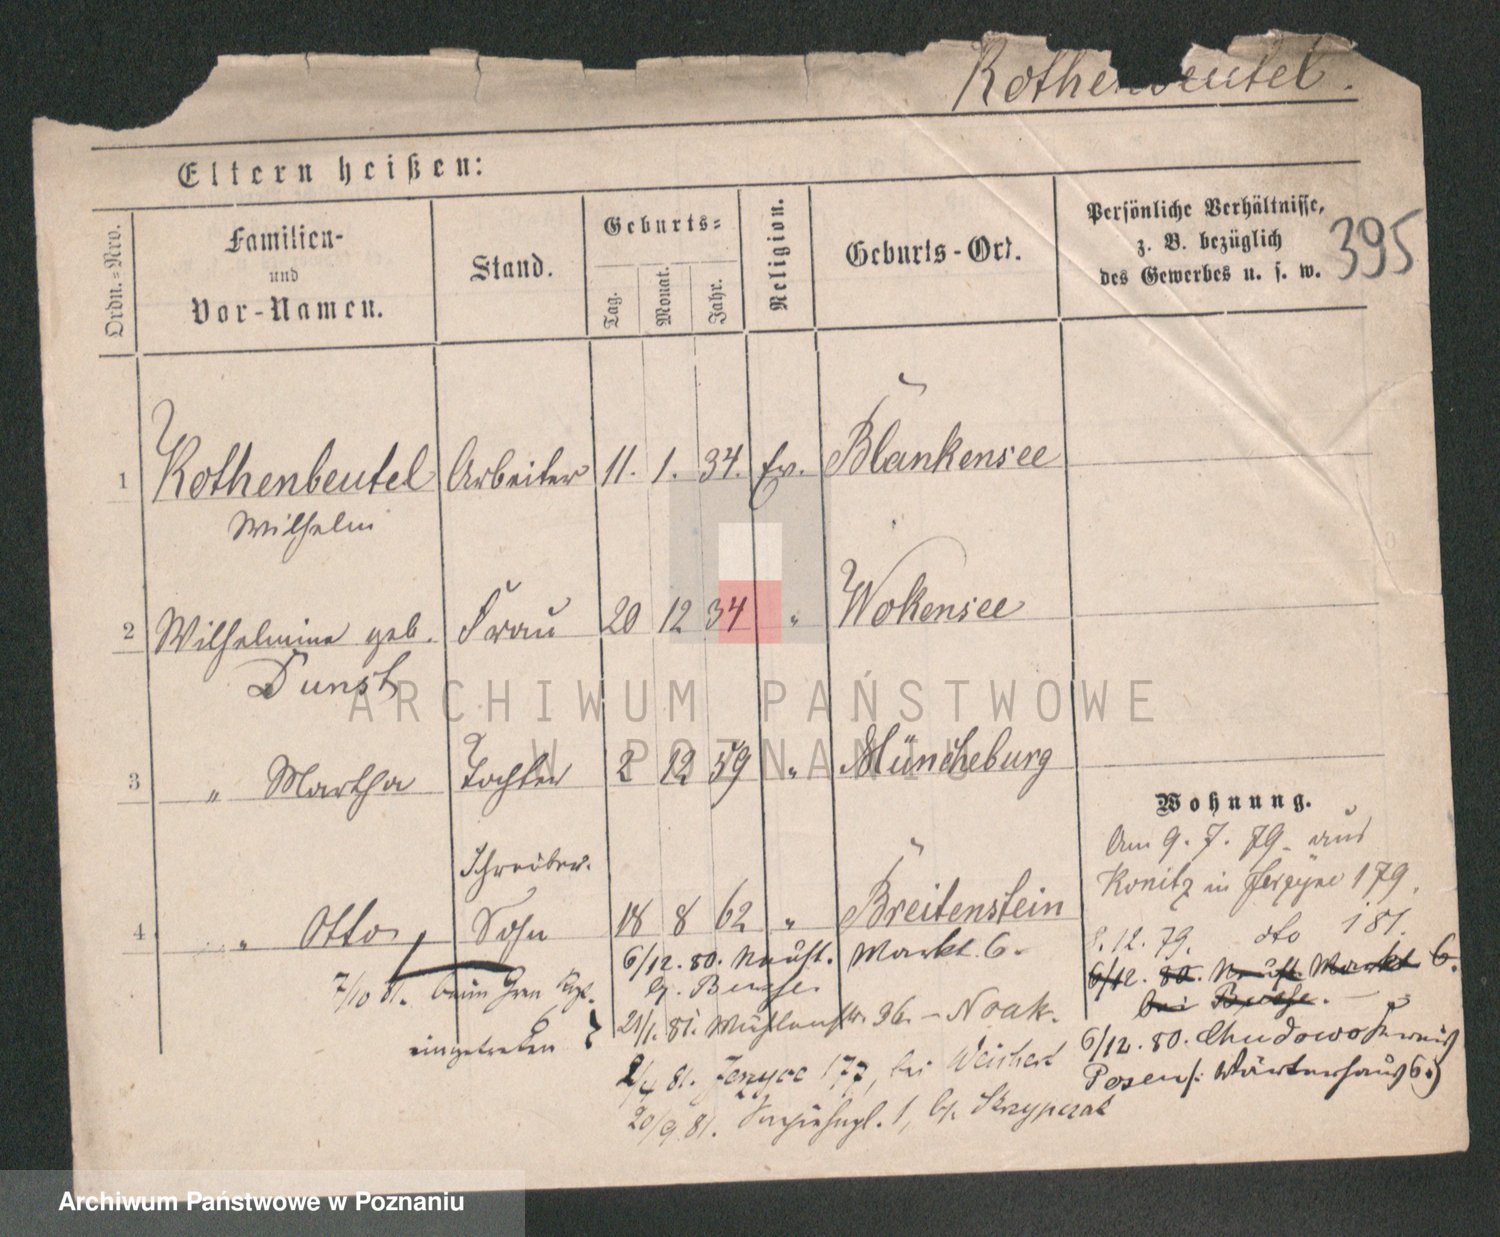 Rothenbeutel.
Eltern heißen:
Ordn.-Nro.
Familien-
und
Vor-Namen.
Stand.
Geburts-
Tag.
Monat.
Jahr.
Religion.
Geburts-Ort.
Persönliche Verhältnisse,
z. B. bezüglich
des Gewerbes u. s. w.
395
1 Rothenbeutel Arbeiter 11. 1. 34. Ev. Blankensee
Wilhelm
2 Wilhelmine geb. Frau 20 12 34 " Wokensee
Dunst
3 " Martha Tochter 2 12 59 " Müncheburg
Wohnung.
Am 9. 7. 79. aus
Konitz in 179.
Schreiber.
4 " Otto Sohn 18 8 62 " Breitenstein
8. 12. 79. dto 181.
7/10 81. beim Gren Rgt.
6
eingetreten
6/12. 80. Neust. Markt 6.
b. Busse
21/1. 81. Mühlenstr. 36. - Noak.
2/4 81. Jerzyce 177, bei Weichert
20/9 81. 1, b. Skrzypczak
6/12. 80. Neust. Markt 6.
bei Busse. -
6/12. 80.
Posen/: Wärterhaus 6:)
ARCHIWUM PAŃSTWOWE
W POZNANIU
Archiwum Państwowe w Poznaniu